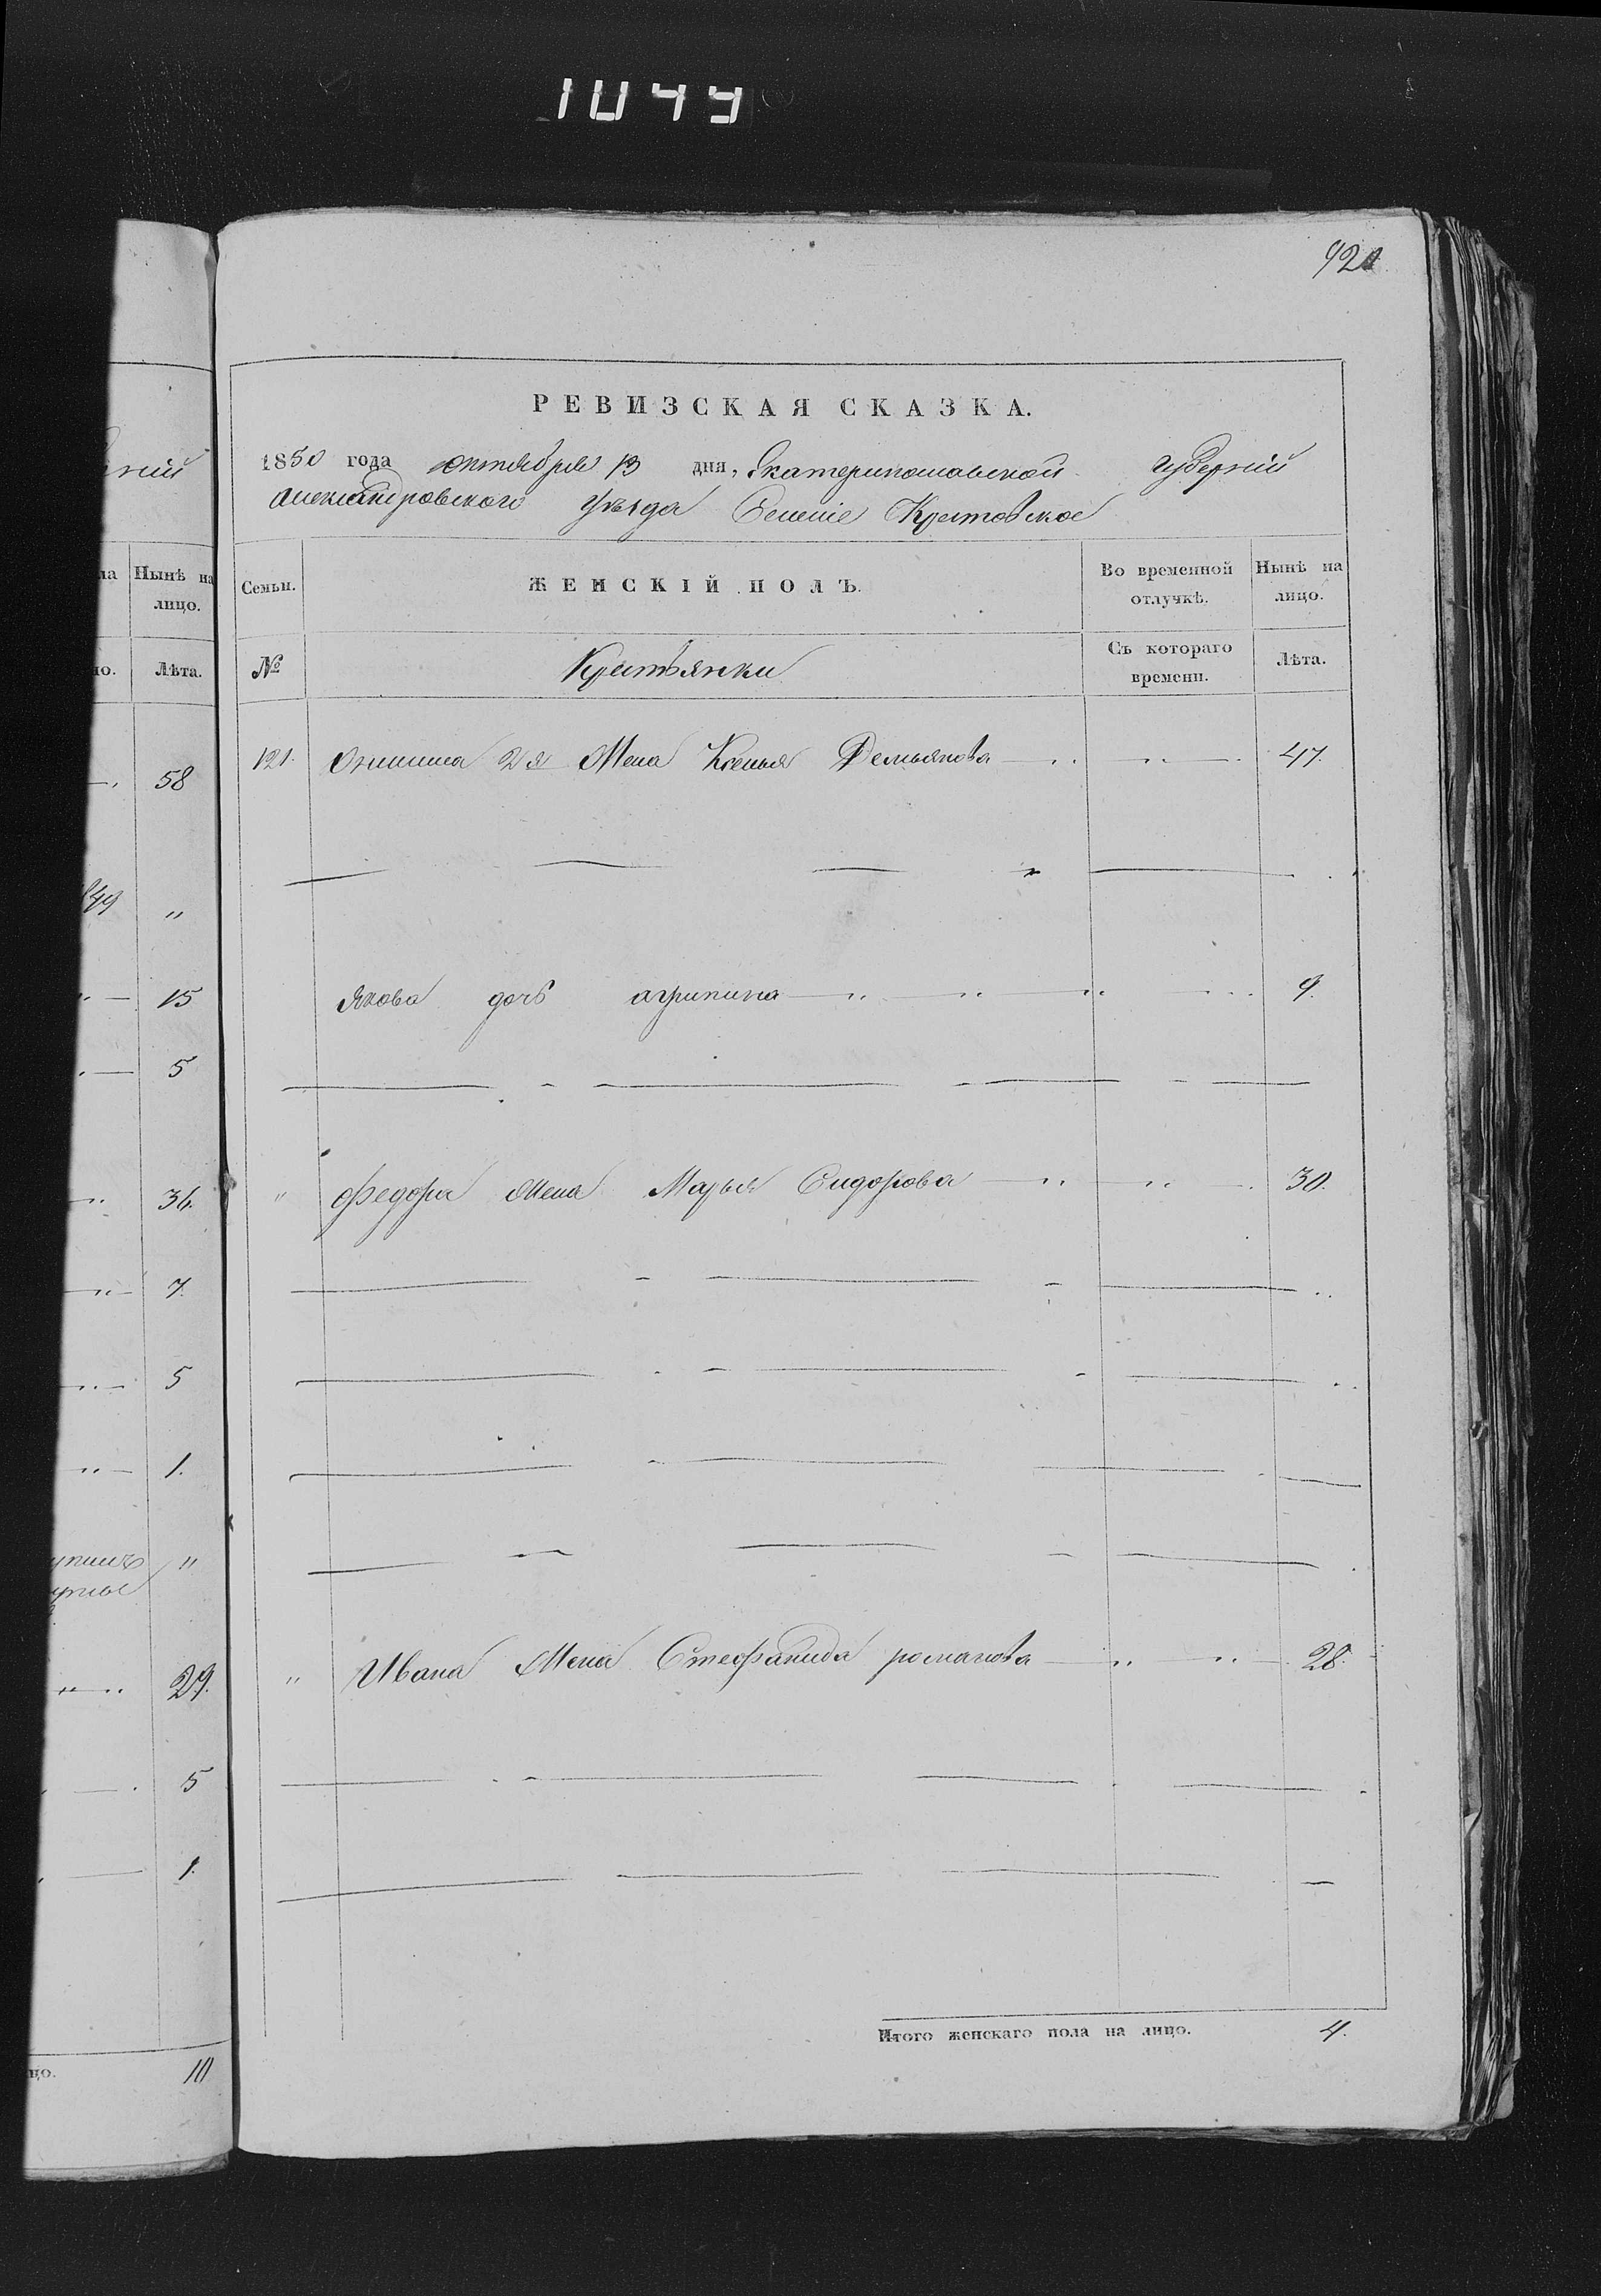 1049
921
РЕВИЗСКАЯ СКАЗКА.
1850 года октября 13 дня, Екатеринославской губерніи
александровского уѣзда Селеніе Крестовское
Семьи. ЖЕНСКІЙ ПОЛЪ. Во временной отлучкѣ. Нынѣ на лицо.
№ Крестьянки Съ котораго времени. Лѣта.
121. 2я Жена Ксенья Демьянова 47.
Якова дочь агрипина 9.
" Федора Жена Марья Сидорова 30.
" Ивана Жена Стефанида романова 28.
Итого женскаго пола на лицо. 4.
ла Нынѣ на лицо.
но. Лѣта.
58
"
15
5
36.
7.
5
1.
"
29.
5
1.
цо. 10